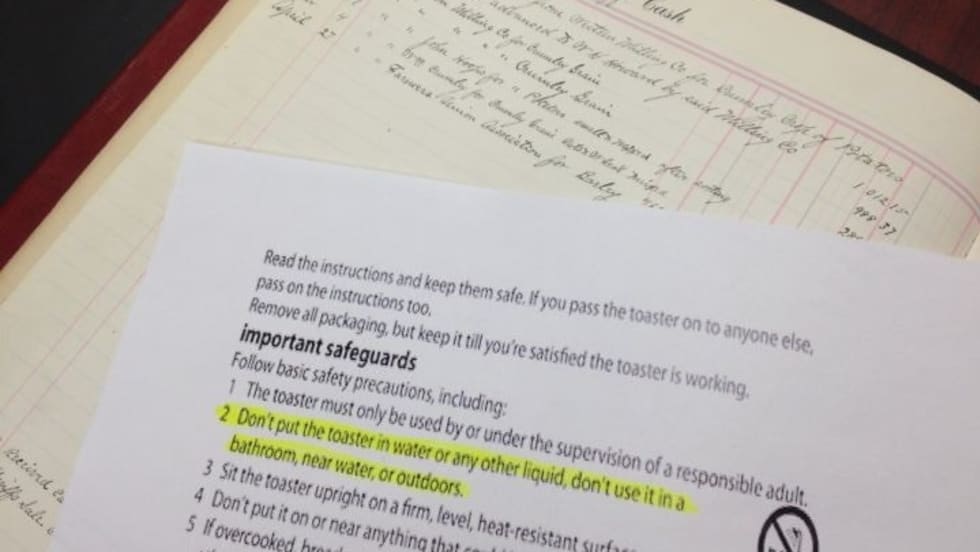 Cash
from Milling Co for Crumley Crop of Potatoes
advanced by said Milling Co
April 4 Milling Co for Crumley Grain
27 " " " Crumley Grain
John for "
Crumley for Grain
Farmers Union Association for Barley
1012 15
988 33
Read the instructions and keep them safe. If you pass the toaster on to anyone else,
pass on the instructions too.
Remove all packaging, but keep it till you're satisfied the toaster is working.
important safeguards
Follow basic safety precautions, including:
1 The toaster must only be used by or under the supervision of a responsible adult.
2 Don't put the toaster in water or any other liquid, don't use it in a
bathroom, near water, or outdoors.
3 Sit the toaster upright on a firm, level, heat-resistant
4 Don't put it on or near anything that
5 If overcooked,